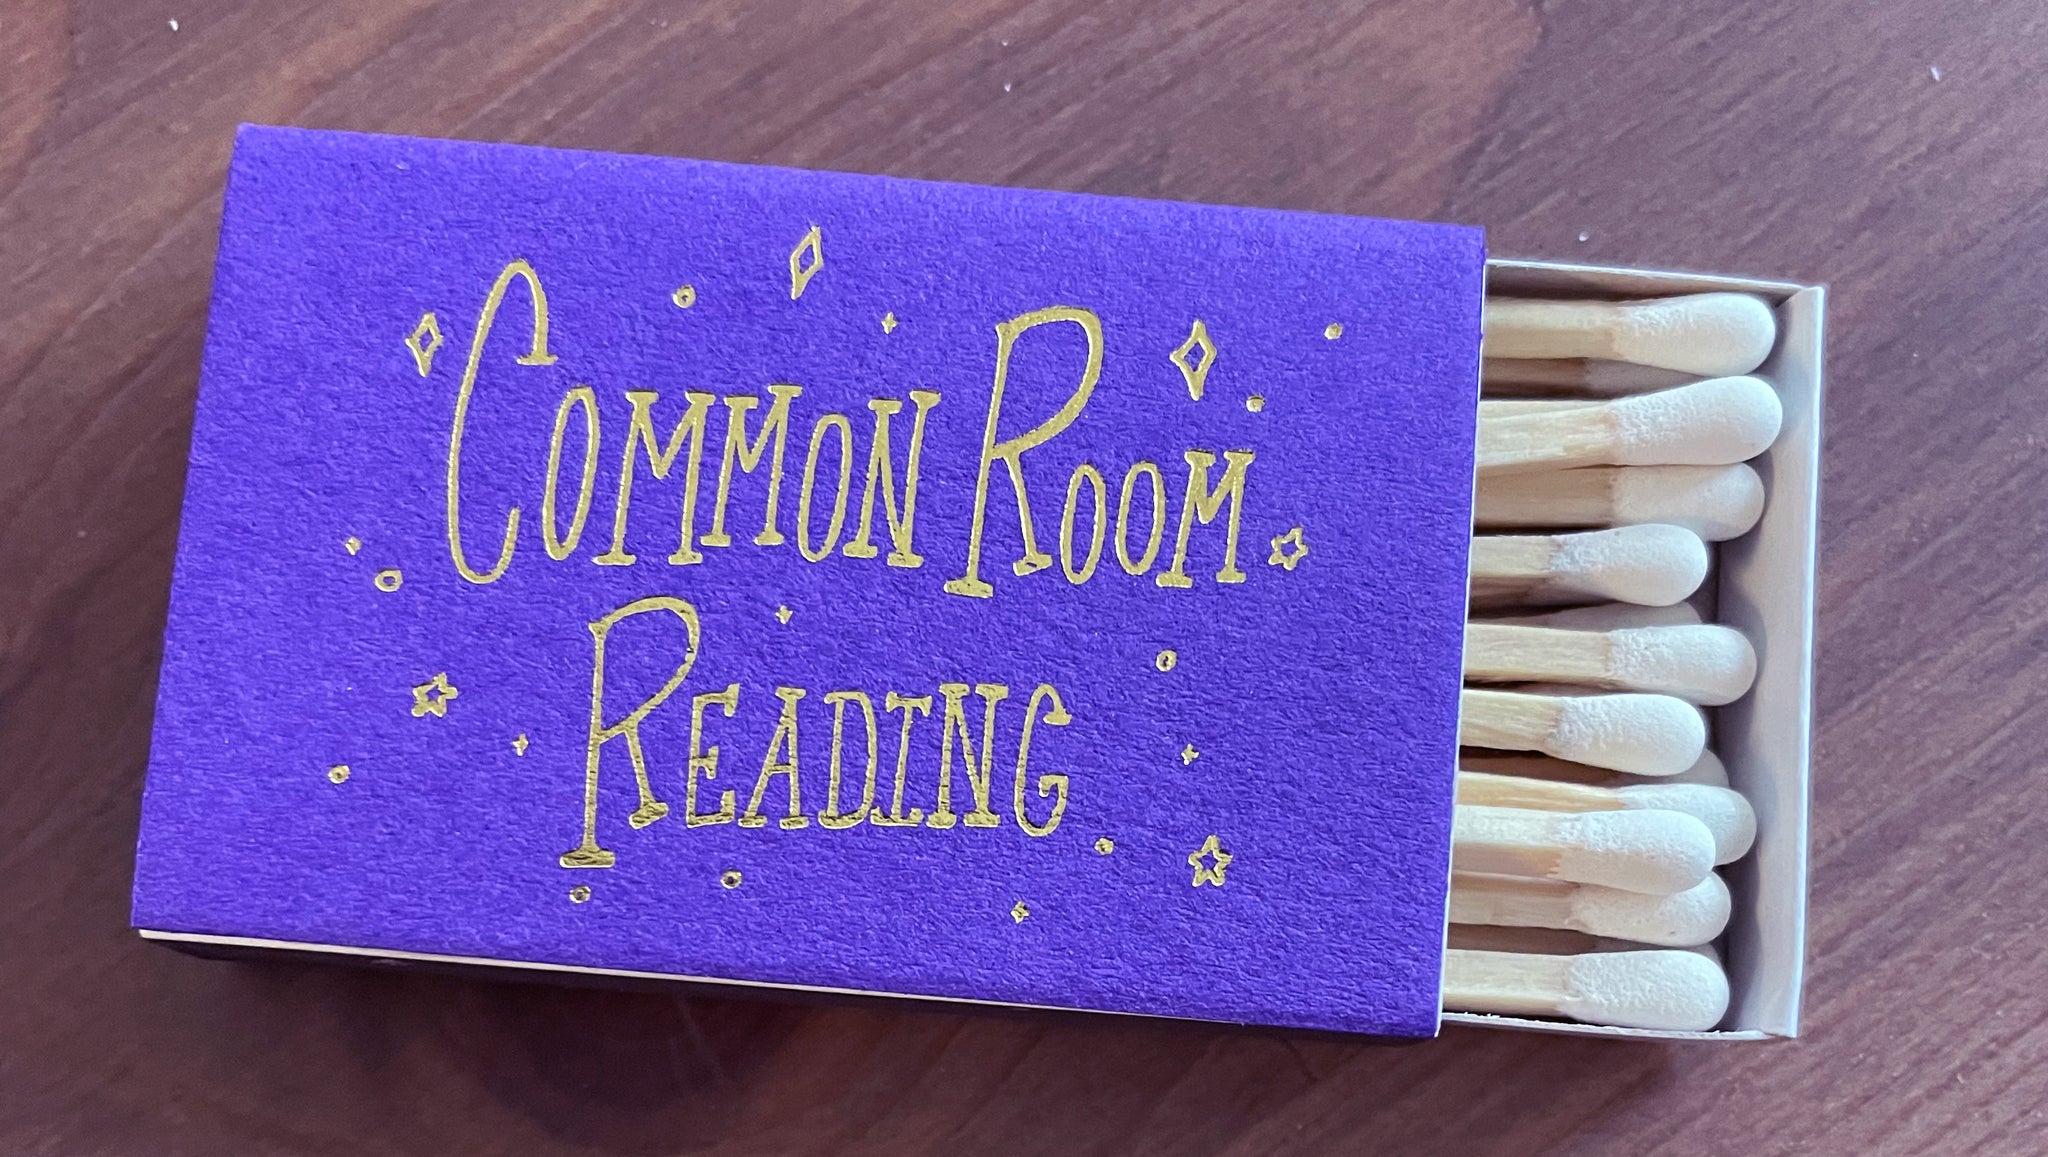 Common Room
Reading